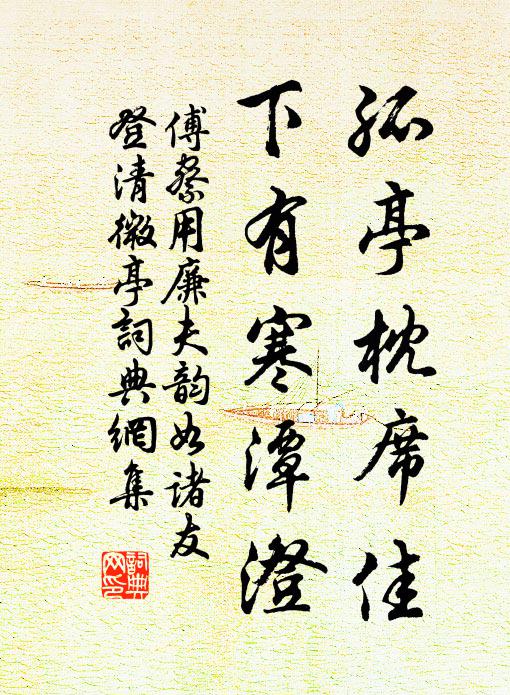 孤亭枕席佳
下有寒潭澄
傅察用廉夫韵如诸友
登清微亭詞典網集
詞典網印